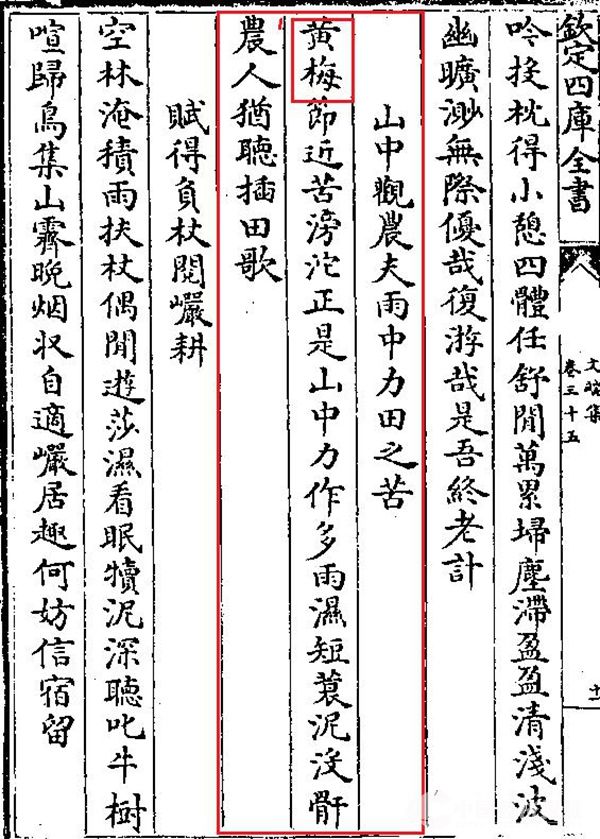 欽定四庫全書
文端集
卷三十五
十一
吟投枕得小憩四體任舒閒萬累埽塵滯盈盈清淺波
幽曠渺無際優哉復游哉是吾終老計
山中觀農夫雨中力田之苦
黄梅節近苦滂沱正是山中力作多雨濕短蓑泥沒骭
農人猶聽插田歌
賦得負杖閲巗耕
空林淹積雨扶杖偶閒遊莎濕看眠犢泥深聽叱牛樹
喧歸鳥集山霽晚烟収自適巗居趣何妨信宿留